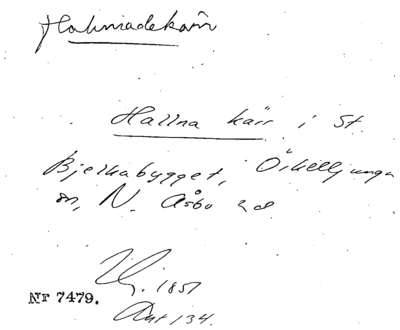 Hallna kärr i St.
Bjerkabygget, Örkelljunga
sn, N. Åsbo hd
1857
Nr 7479. Akt 134.